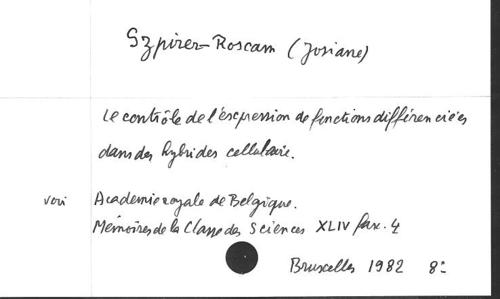 Szpirer-Roscam (Josiane)
Le contrôle de l'expression de fonctions différenciées
dans des hybrides cellulaire.
voir Academie royale de Belgique.
Mémoires de la Classe des Sciences XLIV fasc. 4
Bruxelles 1982 8°